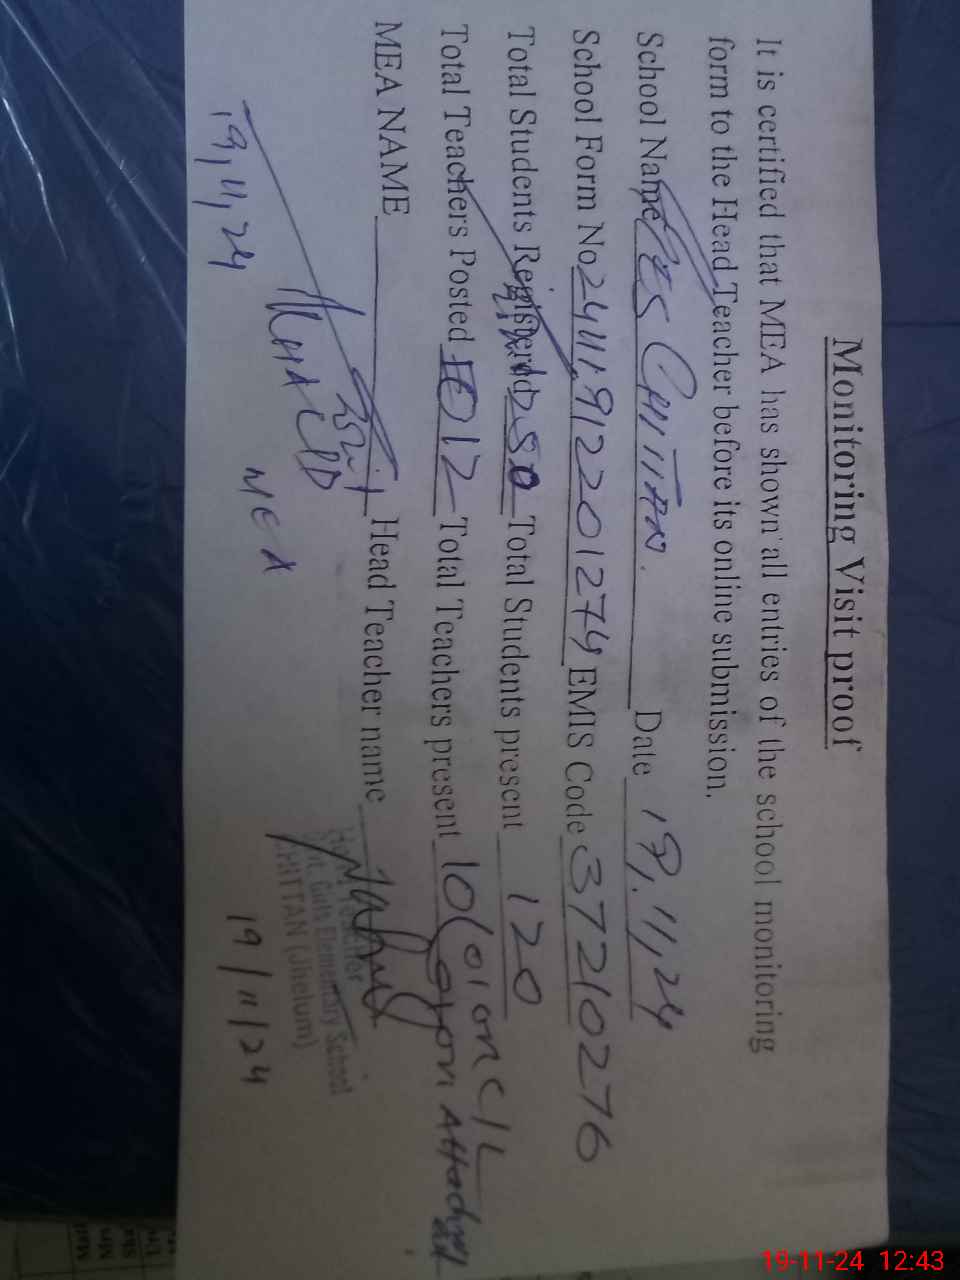 Monitoring Visit proof
It is certified that MEA has shown all entries of the school monitoring
form to the Head Teacher before its online submission.
School Name GES CHITTAN. Date 19.11.24
School Form No 24111912201274 EMIS Code 37210276
Total Students Registered 250 Total Students present 120
Total Teachers Posted 12 Total Teachers present 10 (01 on C/L
01 on Attached
MEA NAME Head Teacher name
19.11.24
MEA
Govt. Girls Elementary School
CHITTAN (Jhelum)
19/11/24
19-11-24 12:43